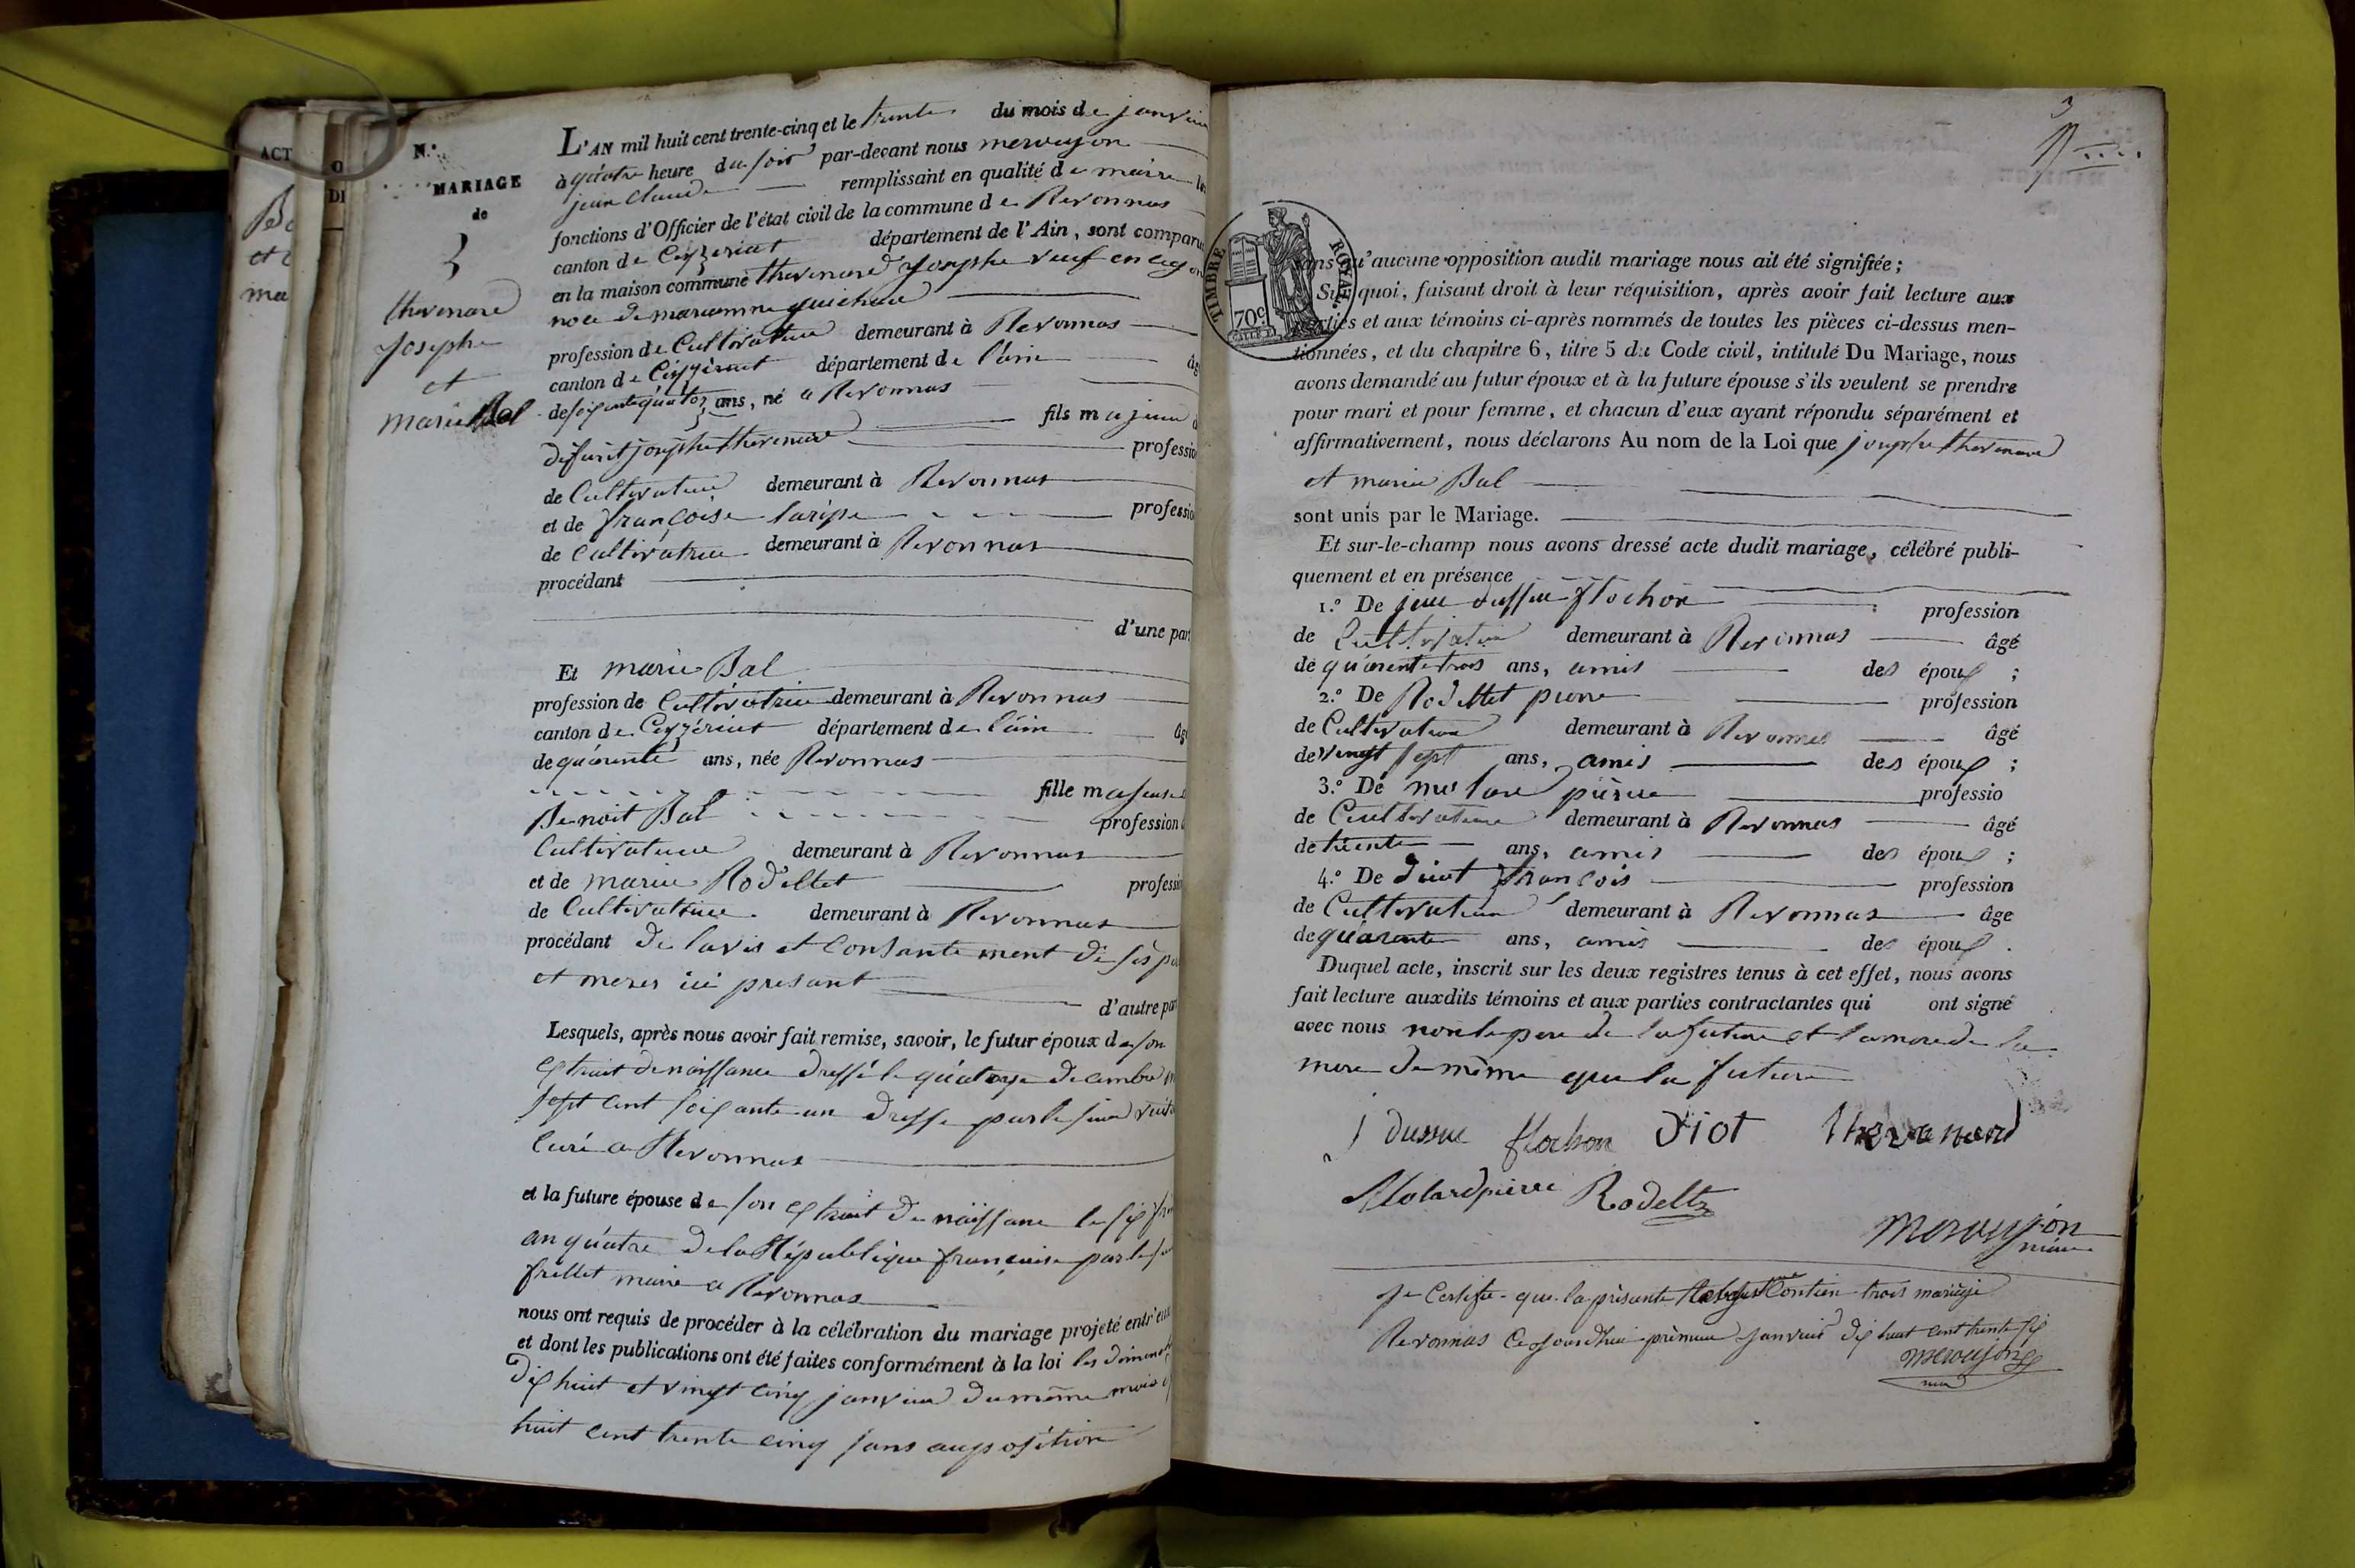 ACT
Ba
et
ma
O
DI
N.º
MARIAGE
de
3
thevenard
Josephe
et
marie Bal
L'AN mil huit cent trente-cinq et le trente du mois de janvier
à quatre heure du soir par-devant nous mervuson
jean Claude remplissant en qualité de maire les
fonctions d'Officier de l'état civil de la commune de Revonnas
canton de Ceyzeriat département de l'Ain, sont comparu
en la maison commune thevenard Josephe veuf en
noce de mariamne guichard
profession de Cultivateur demeurant à Revonnas
canton de Ceyzériat département de l'ain âg
de soixante quatorz ans, né a Revonnas
fils majeur d
défunt josephe thevenard professio
de Cultivateur demeurant à Revonnas
et de françoise laripe professio
de Cultivatrice demeurant à Revonnas
procédant
d'une par
Et marie Bal
profession de Cultivatrice demeurant à Revonnas
canton de Ceyzériat département de l'ain âg
de quarente ans, née Revonnas
fille majeure
Benoit Bal profession d
Cultivateur demeurant à Revonnas
et de marie Rodellet professi
de Cultivatrice demeurant à Revonnas
procédant de lavis et Consantement de ses
et merer ici presant
d'autre par
Lesquels, après nous avoir fait remise, savoir, le futur époux de son
extrait de naissance dressé le quatorze decembre
sept cent soixante un dresse par le sieur
Curé a Revonnas
et la future épouse de son extrait de naissance le six
an quatre de la République française par le
frillet maire a Revonnas
nous ont requis de procéder à la célébration du mariage projeté entr'eux
et dont les publications ont été faites conformément à la loi les dimenche
dix huit et vingt cinq janvier du même mois
huit cent trente cinq sans auposition
3
TIMBRE ROYAL
70c
sans qu'aucune opposition audit mariage nous ait été signifiée ;
Sur quoi, faisant droit à leur réquisition, après avoir fait lecture aux
parties et aux témoins ci-après nommés de toutes les pièces ci-dessus men-
tionnées, et du chapitre 6, titre 5 du Code civil, intitulé Du Mariage, nous
avons demandé au futur époux et à la future épouse s'ils veulent se prendre
pour mari et pour femme, et chacun d'eux ayant répondu séparément et
affirmativement, nous déclarons Au nom de la Loi que josephe thevenard
et marie Bal
sont unis par le Mariage.
Et sur-le-champ nous avons dressé acte dudit mariage, célébré publi-
quement et en présence
1.º De flochon profession
de Cultivateur demeurant à Revonnas âgé
de quarente trois ans, amis des époux ;
2.º De Rodellet pierre profession
de Cultivateur demeurant à Revonnas âgé
de vingt sept ans, amis des époux ;
3.º De molard pierre professio
de Cultivateur demeurant à Revonnas âgé
de trente ans, amis des époux ;
4.º De diot françois profession
de Cultivateur demeurant à Revonnas âge
de quarente ans, amis des époux .
Duquel acte, inscrit sur les deux registres tenus à cet effet, nous avons
fait lecture auxdits témoins et aux parties contractantes qui ont signé
avec nous non le pere de la future et de la
mere de même que la future
j dussuc flochon Diot thevenard
Molard pierre Rodellet
mervuson
maire
Je Certifie que la présante Contien trois mariage
Revonnas Cejourd'hui premier janvier dix huit cent trente six
mervuson
maire